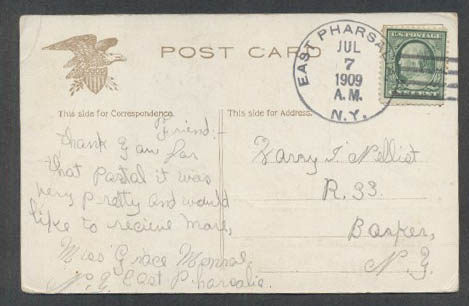 POST CARD
EAST PHARSA
JUL
7
1909
A.M.
N.Y.
U.S. POSTAGE
This side for Correspondence.
This side for Address.
Friend:-
Thank You for
that Postal it was
very Pretty and would
like to recieve more,
Miss Grace Monroe
N.Y. East Pharsalia.
Harry I. Nellist
R. 33.
Barker,
N.Y.